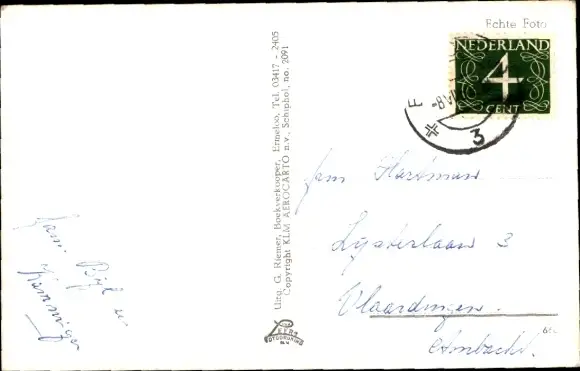 Echte Foto
NEDERLAND
4
CENT
-8 VII
3
Uitg. G. Riemer, Boekverkooper, Ermeloo, Tel. 03417 - 2405
Copyright KLM AEROCARTO n.v., Schiphol, no. 2091
Fam Hartman
Lijsterlaan 3
Vlaardingen.
Ambacht.
Fam. Bijl en